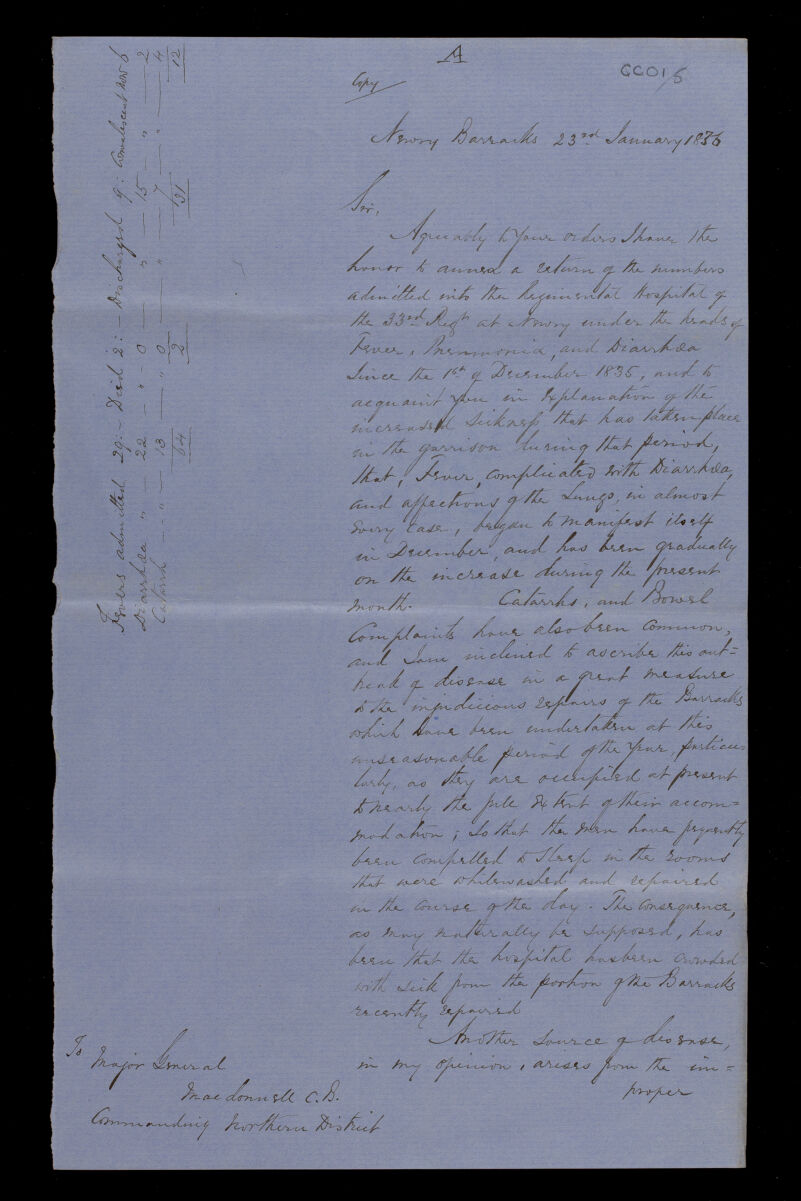 A
GC01/5
Copy
Newry Barracks 23rd January 1836
Sir,
Agreeably to your orders I have the
honor to annex a return of the numbers
admitted into the Regimental Hospital of
the 33rd Regt at Newry under the heads of
Fever, Pneumonia, and Diarrhœa
since the 1st of December 1835, and to
acquaint you in explanation of the
increased sickness that has taken place
in the garrison during that period,
that, Fever, complicated with Diarrhœa,
and affections of the Lungs, in almost
every case, began to manifest itself
in December, and has been gradually
on the increase during the present
month. Catarrhs, and Bowel
Complaints have also been common,
and I am inclined to ascribe this out=
break of disease in a great measure
to the injudicious repairs of the Barracks
which have been undertaken at this
unseasonable period of the year, particu
larly, as they are occupied at present
to nearly the full extent of their accom=
modation; so that the men have frequently
been compelled to sleep in the rooms
that were whitewashed and repaired
in the course of the day. The consequence,
as may naturally be supposed, has
been that the hospital has been crowded
with sick from the portion of the Barracks
recently repaired
Another source of disease,
in my opinion, arises from the im=
proper
To
Major General
Macdonnell C.B.
Commanding Northern District
Fevers admitted 29:- Died 2:- Discharged 9: Convalescent now 6
Diarrhœa " - 22 - " - 0 - " - 15 - " - 2
Catarrh - " - 13 - " 0 - " - 7 - " - 4
64 2 31 12